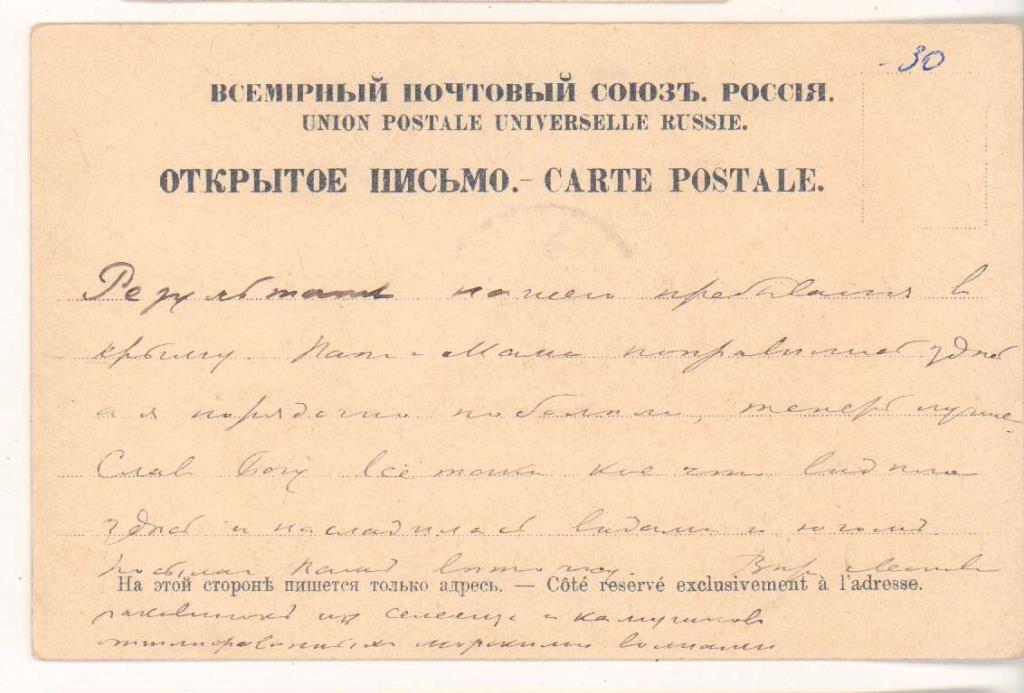 -30
ВСЕМІРНЫЙ ПОЧТОВЫЙ СОЮЗЪ. РОССІЯ.
UNION POSTALE UNIVERSELLE RUSSIE.
ОТКРЫТОЕ ПИСЬМО.- CARTE POSTALE.
Результат нашего пребывания в
крыму. Папа и Мама поправились здесь
а я порядочно поболела, теперь лучше.
Слав Богу всё таки кое что видела
здесь и насладилась видами и югомъ.
Посылаю
На этой сторонѣ пишется только адресъ. — Côté reservé exclusivement à l'adresse.
раковинокъ из и камушков
отшлифованныхъ морскими волнами